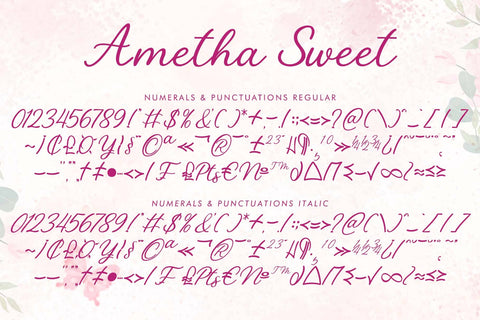 Ametha Sweet
NUMERALS & PUNCTUATIONS REGULAR
0123456789!"#$%&'()*+,-./:;<=>?@(\)^_`{|}
~¡¢£¤¥¦§¨©ª«¬¯®¯°±²³´¶·¸¹º»¼½¾¿ƒˆˇ˘˙˚˛˜˝
–—''‚""„†‡•–‹›⁄₣₤₧€№™∂∆∏∑−√∞∫≈≤≥
NUMERALS & PUNCTUATIONS ITALIC
0123456789!"#$%&'()*+,-./:;<=>?@(\)^_`{|}
~¡¢£¤¥¦§¨©ª«¬¯®¯°±²³´¶·¸¹º»¼½¾¿ƒˆˇ˘˙˚˛˜˝
–—''‚""„†‡•–‹›⁄₣₤₧€№™∂∆∏∑−√∞∫≈≤≥